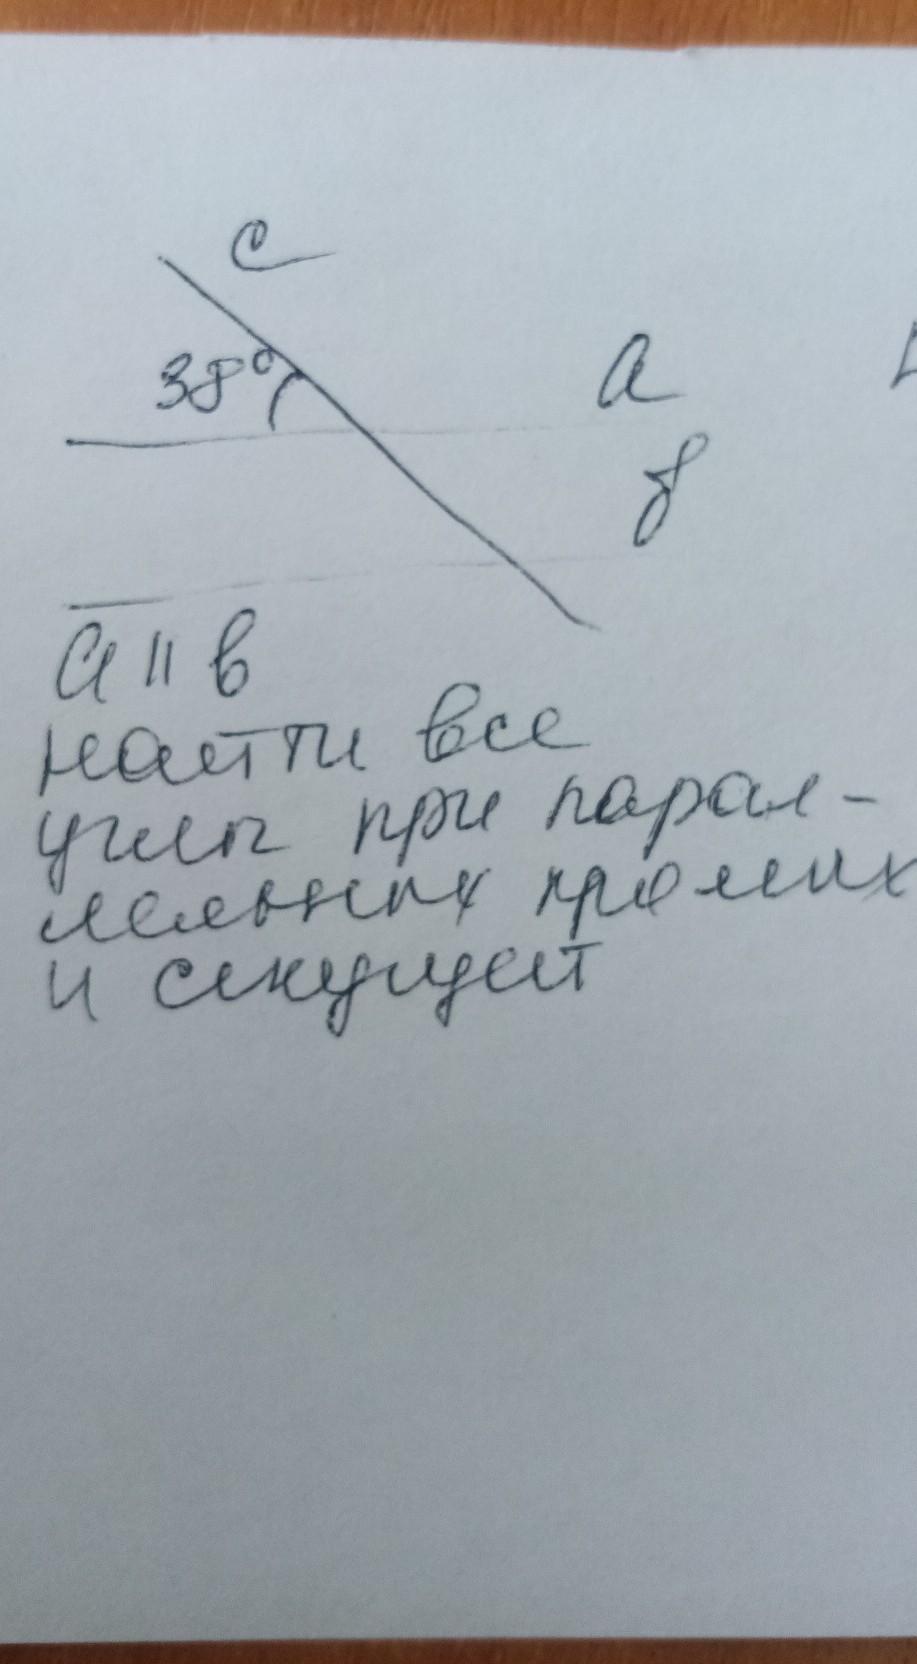 c
38°
a
b
a || b
найти все
углы при парал-
лельных прямых
и секущей